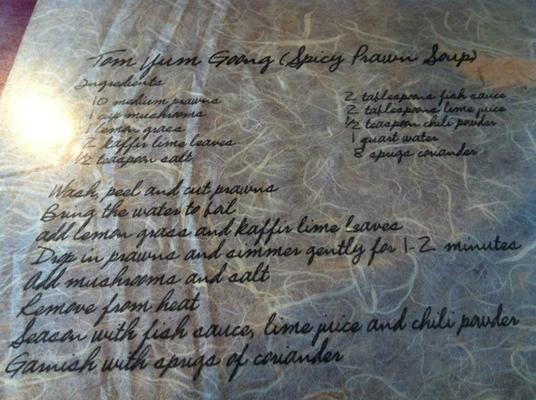 Tom Yum Goong (Spicy Prawn Soup)
Ingredients
10 medium prawns
1 cup mushrooms
1 lemon grass
2 kaffir lime leaves
1/2 teaspoon salt
2 tablespoons fish sauce
2 tablespoons lime juice
1/2 teaspoon chili powder
1 quart water
8 sprigs coriander
Wash, peel and cut prawns
Bring the water to boil
add lemon grass and kaffir lime leaves
Drop in prawns and simmer gently for 1-2 minutes
Add mushrooms and salt
Remove from heat
Season with fish sauce, lime juice and chili powder
Garnish with sprigs of coriander